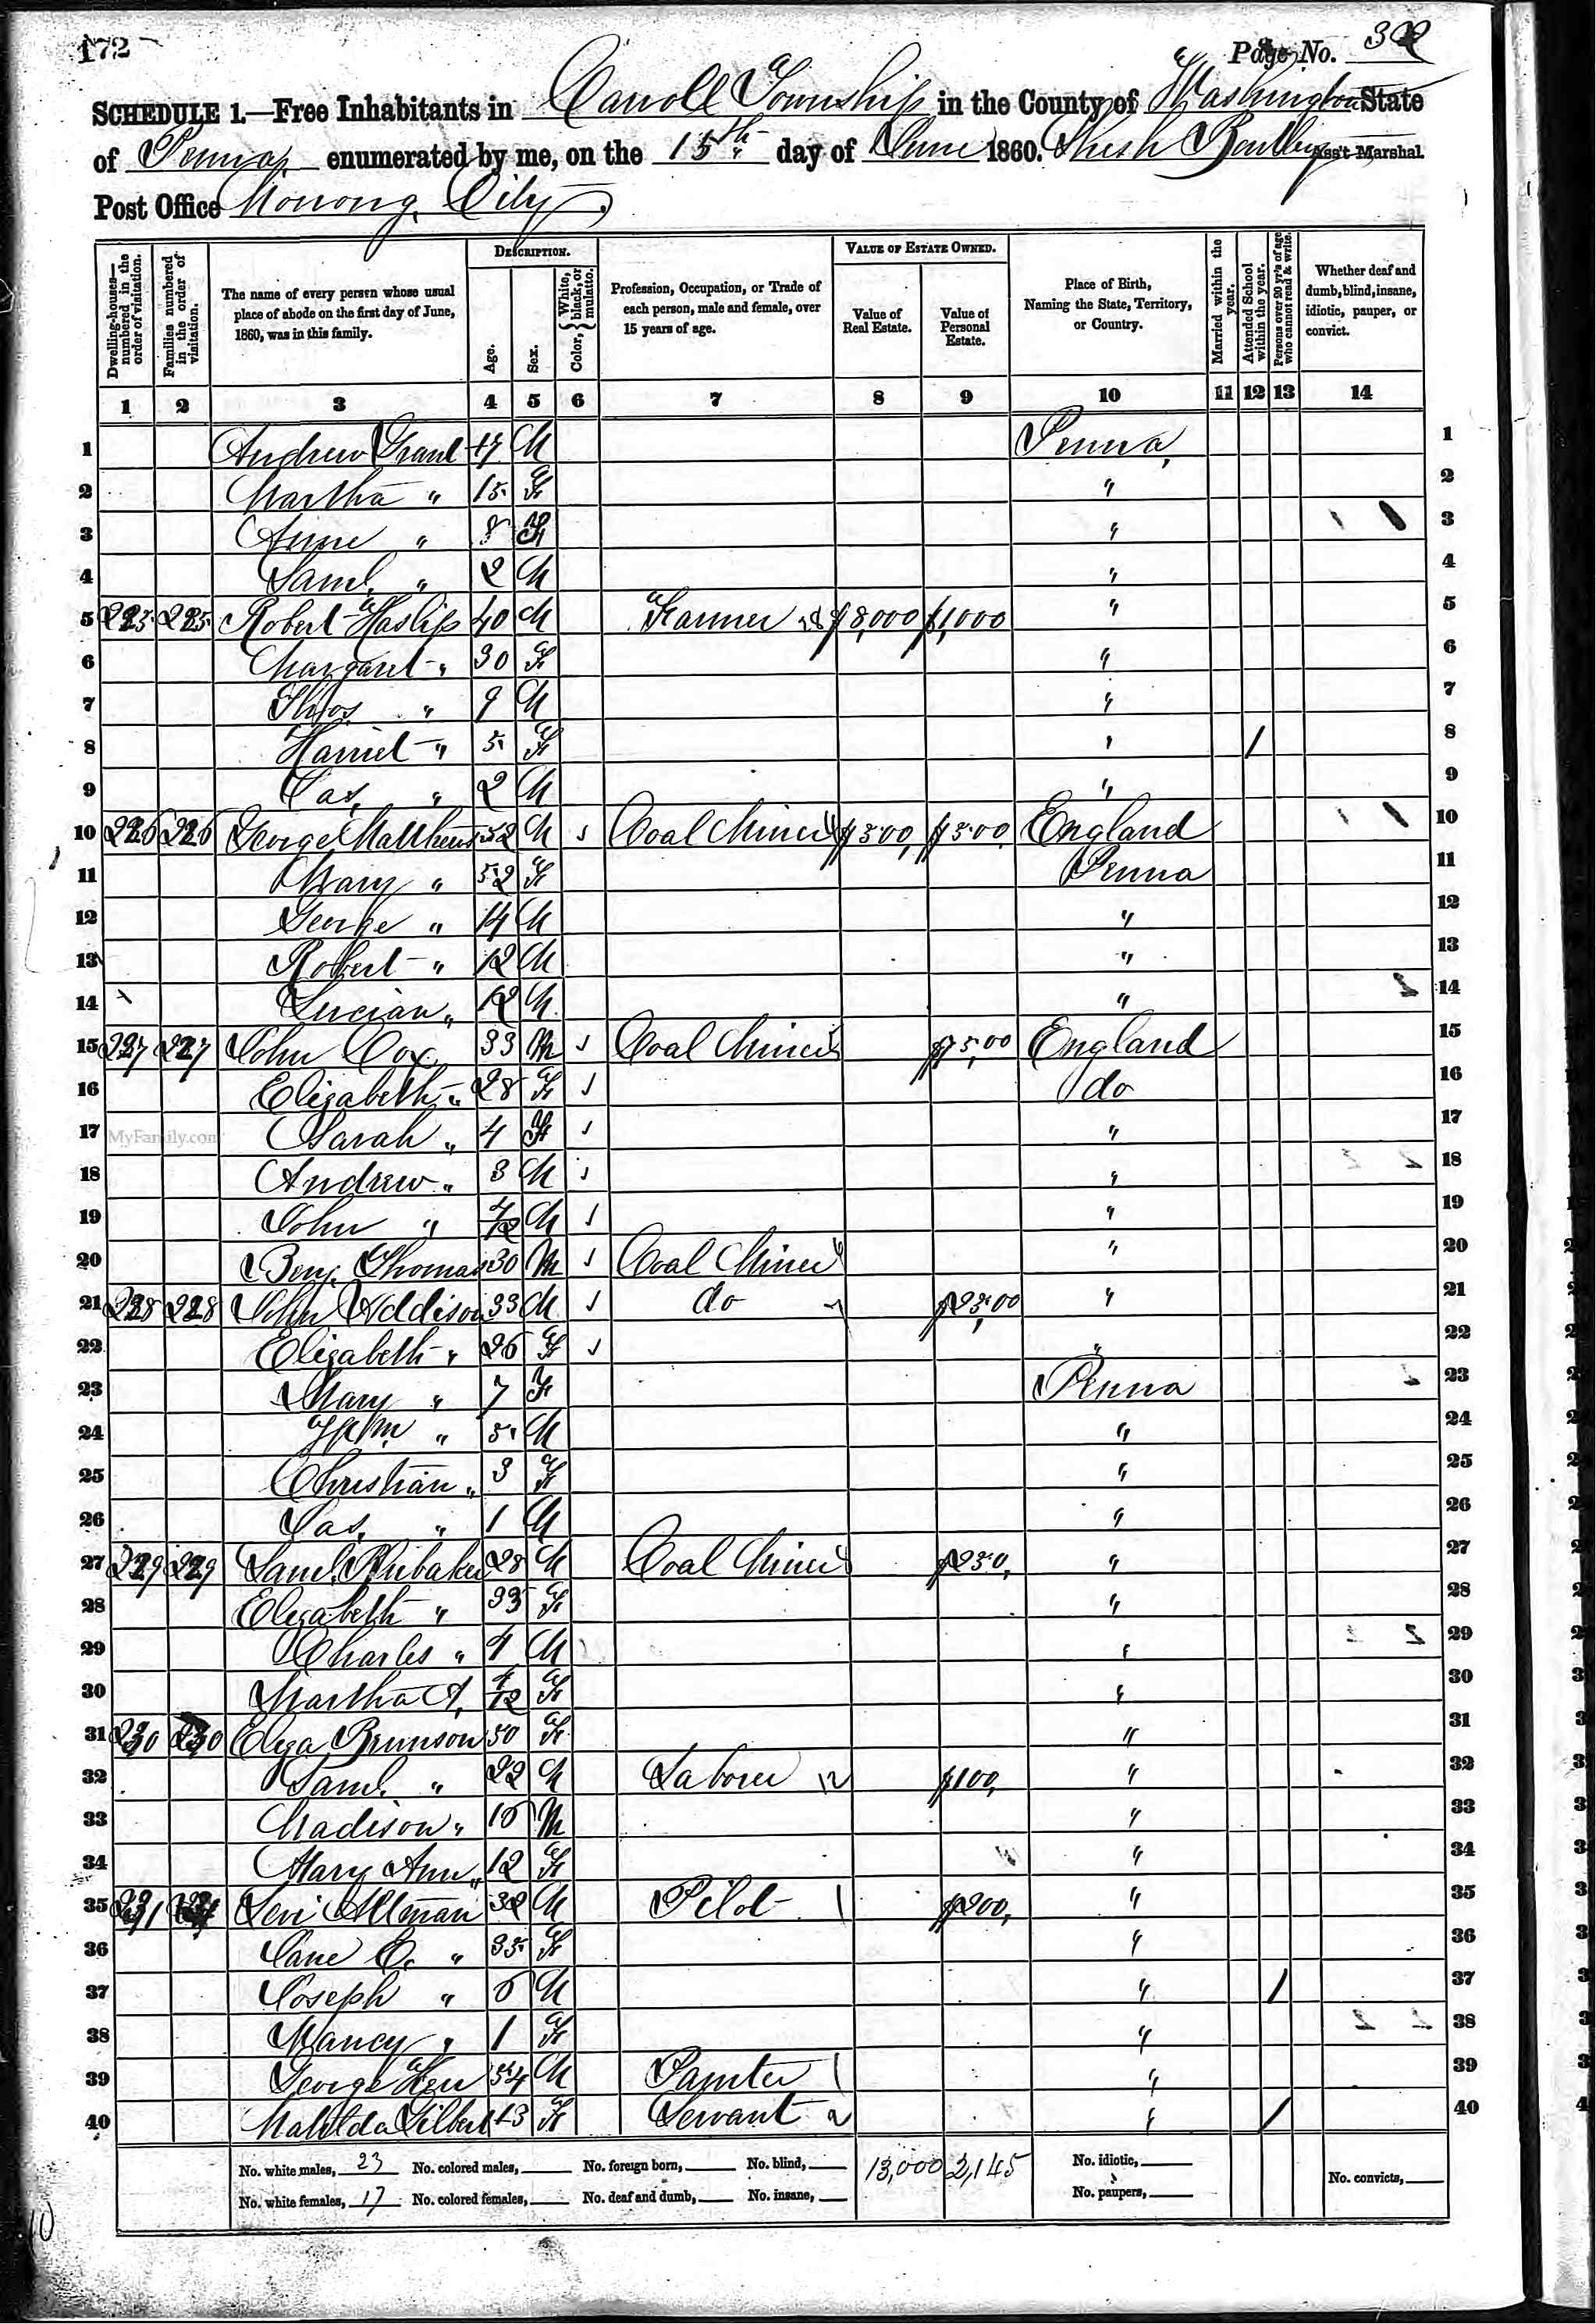 172
Page No. 302
SCHEDULE 1.—Free Inhabitants in Carroll Township in the County of Washington State
of Penna. enumerated by me, on the 15th day of June 1860. Ass't Marshal.
Post Office Monong. City
Dwelling-houses—numbered in the order of visitation.
Families numbered in the order of visitation.
The name of every person whose usual place of abode on the first day of June, 1860, was in this family.
DESCRIPTION.
Age.
Sex.
Color, { White, black, or mulatto.
Profession, Occupation, or Trade of each person, male and female, over 15 years of age.
VALUE OF ESTATE OWNED.
Value of Real Estate.
Value of Personal Estate.
Place of Birth, Naming the State, Territory, or Country.
Married within the year.
Attended School within the year.
Persons over 20 yr's of age who cannot read & write.
Whether deaf and dumb, blind, insane, idiotic, pauper, or convict.
1 2 3 4 5 6 7 8 9 10 11 12 13 14
1 Andrew Grant 17 M Penna, 1
2 Martha " 15 F " 2
3 Anne " 8 F " 3
4 Saml. " 2 M " 4
5 225 225 Robert Haslip 40 M Farmer $8,000 $1,000 " 5
6 Margaret " 30 F " 6
7 Thos " 9 M " 7
8 Harriet " 5 F " / 8
9 Jas. " 2 M " 9
10 226 226 George Matthews 52 M Coal Miner $300, $300, England 10
11 Mary " 52 F Penna 11
12 George " 14 M " 12
13 Robert " 12 M " 13
14 Lucian " 12 M " 14
15 227 227 John Cox 33 M Coal Miner England 15
16 Elizabeth " 28 F do 16
17 MyFamily.com Sarah " 4 F " 17
18 Andrew " 3 M " 18
19 John " 4/12 M " 19
20 Benj. Thomas 30 M Coal Miner " 20
21 228 228 John Addison 33 M do " 21
22 Elizabeth " 26 F " 22
23 Mary " 7 F Penna 23
24 Wm " 5 M " 24
25 Christian " 3 F " 25
26 Jas. " 1 M " 26
27 229 229 Saml. 28 M Coal Miner $250, " 27
28 Elizabeth " 33 F " 28
29 Charles " 4 M " 29
30 Martha A, 4/12 F " 30
31 230 230 Eliza Brunson 50 F " 31
32 Saml. " 22 M Laborer 12 $100, " 32
33 Madison " 16 M " 33
34 Mary Ann " 12 F " 34
35 231 231 Levi Allman 32 M Pilot 1 $200, " 35
36 Jane E. " 35 F " 36
37 Joseph " 6 M " / 37
38 Nancy " 1 F " 38
39 George Kerr 54 M Painter 1 " 39
40 Matilda Gilbert 13 F Servant 2 " / 40
No. white males, 23 No. colored males, No. foreign born, No. blind, 13,000 2,145 No. idiotic,
No. white females, 17 No. colored females, No. deaf and dumb, No. insane, No. paupers, No. convicts,